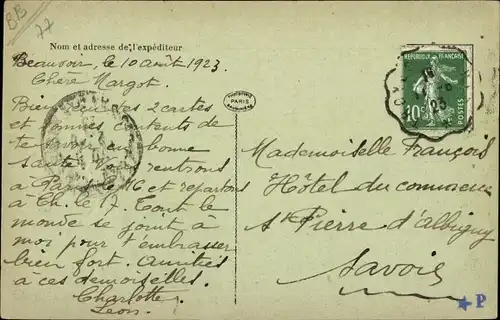 BB
77
Nom et adresse de l'expéditeur
Beauvoir, le 10 août 1923.
Chère Margot.
Bien reçu tes 2 cartes
et sommes contents de
te savoir en bonne
santé. rentrons
à Paris le 16 et repartons
à Ch. le 17. Tout le
monde se joint à
moi pour t'embrasser
bien fort. Amitiés
à ces demoiselles.
Charlotte
Léon.
PARIS
REPUBLIQUE FRANÇAISE
10c
POSTES
23
Mademoiselle François
Hôtel du commerce
St Pierre d'Albigny
Savoie
P